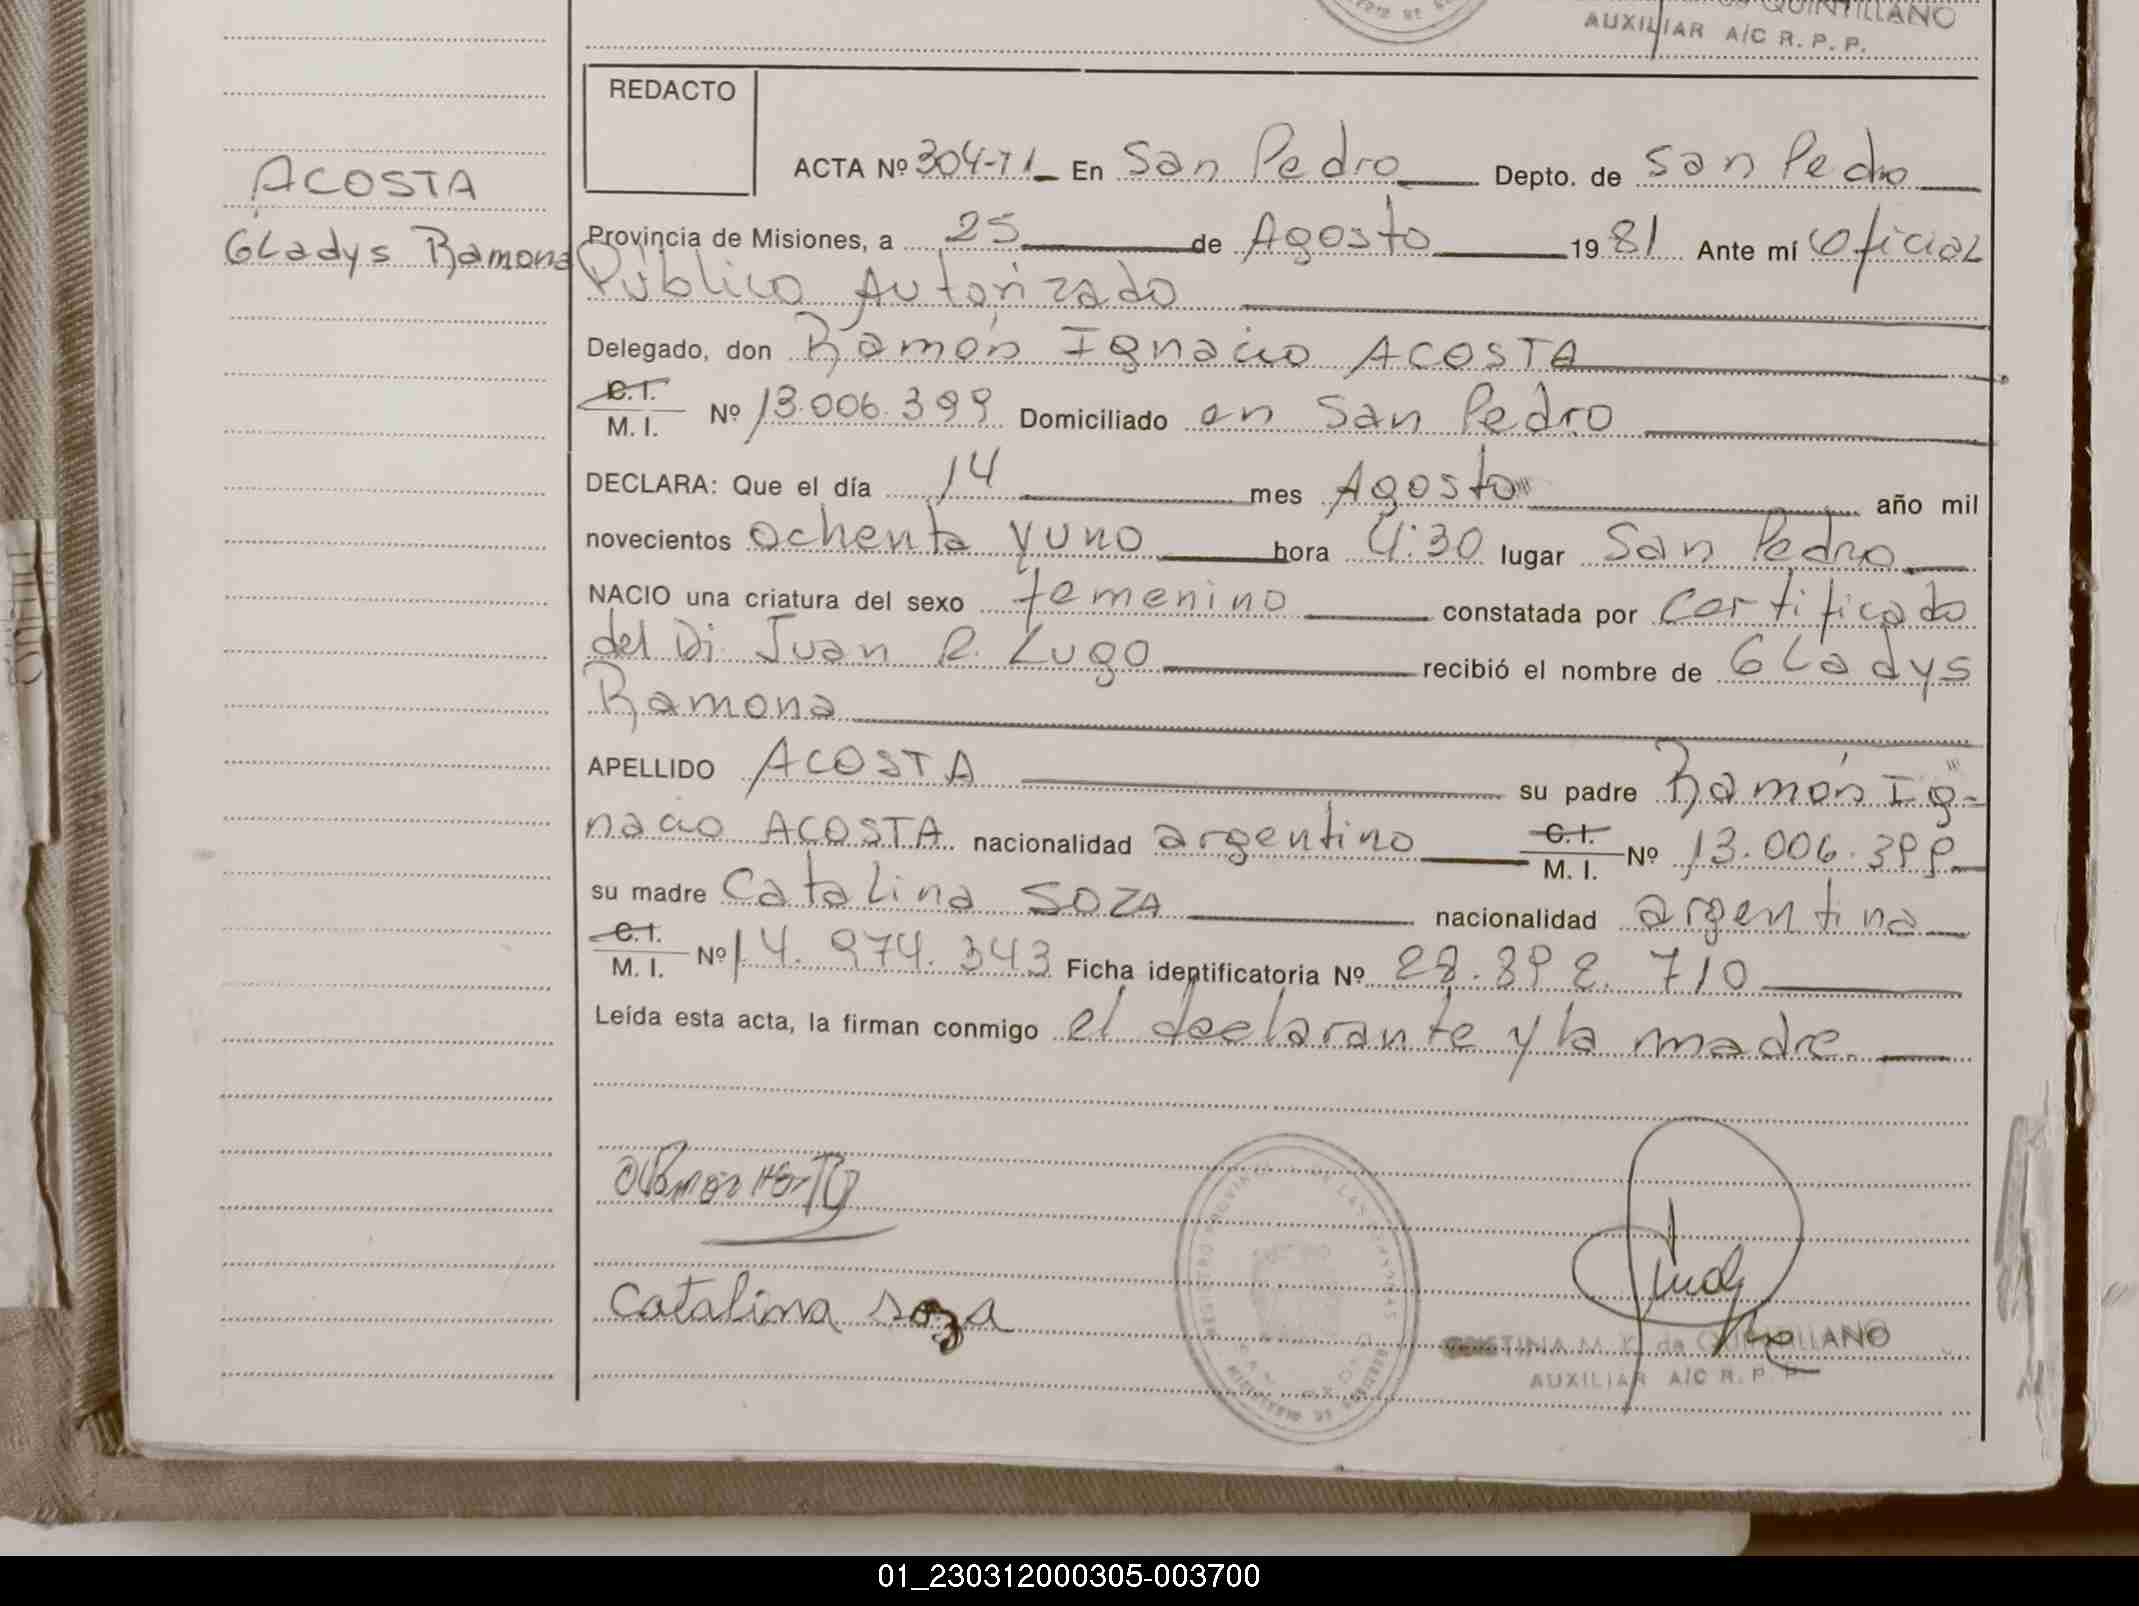 QUINTILLANO
AUXILIAR A/C R. P. P.
REDACTO
ACOSTA
Gladys Ramona
ACTA Nº 304-T1 En San Pedro Depto. de San Pedro
Provincia de Misiones, a 25 de Agosto 1981 Ante mí Oficial
Público Autorizado
Delegado, don Ramón Ignacio ACOSTA
C.I.
M. I. Nº 13.006.399 Domiciliado en San Pedro
DECLARA: Que el día 14 mes Agosto año mil
novecientos ochenta y uno hora 4:30 lugar San Pedro
NACIO una criatura del sexo femenino constatada por Certificado
del Dr. Juan R. Lugo recibió el nombre de Gladys
Ramona
APELLIDO ACOSTA su padre Ramón Ig-
nacio ACOSTA nacionalidad argentino C.I. M. I. Nº 13.006.399
su madre Catalina SOZA nacionalidad argentina
C.I.
M. I. Nº 14.974.343 Ficha identificatoria Nº 28.392.710
Leída esta acta, la firman conmigo el declarante y la madre.
Catalina soza
CRISTINA M. de QUINTILLANO
AUXILIAR A/C R. P. P.
01_230312000305-003700